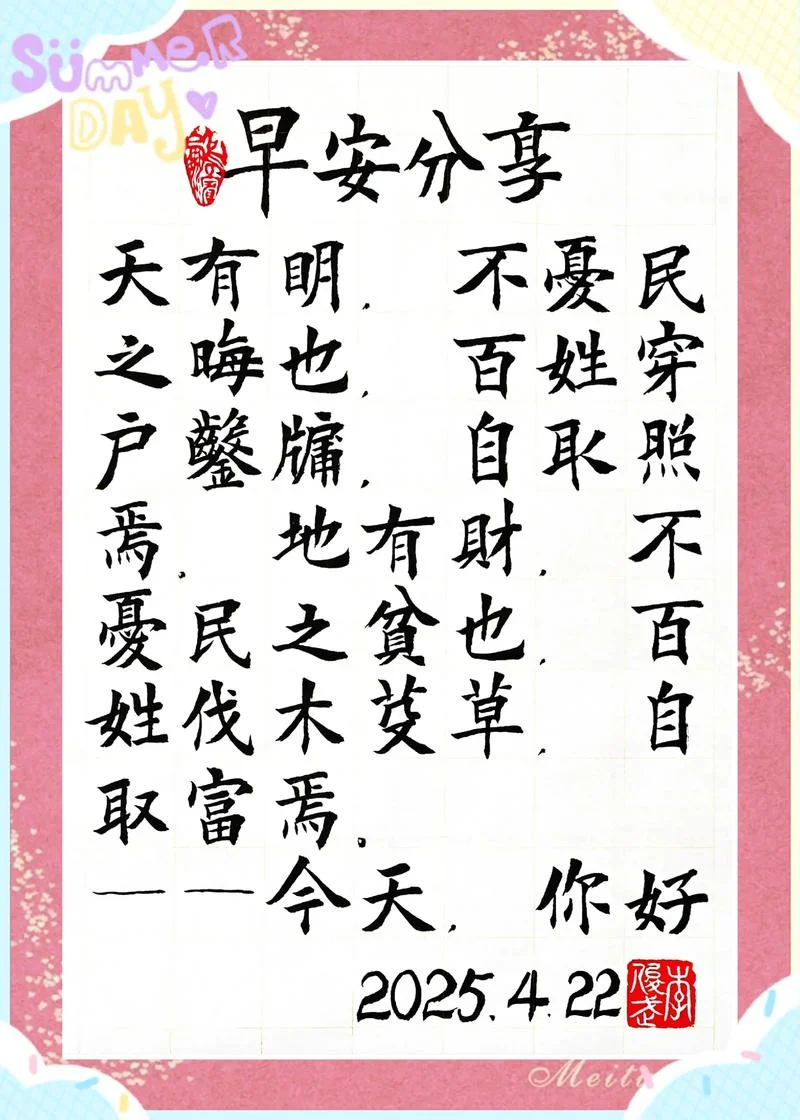 SümmeR
DAY
早安分享
天有明, 不憂民
之晦也, 百姓穿
户鑿牖, 自取照
焉. 地有財, 不
憂民之貧也, 百
姓伐木芟草, 自
取富焉.
——今天, 你好
2025.4.22